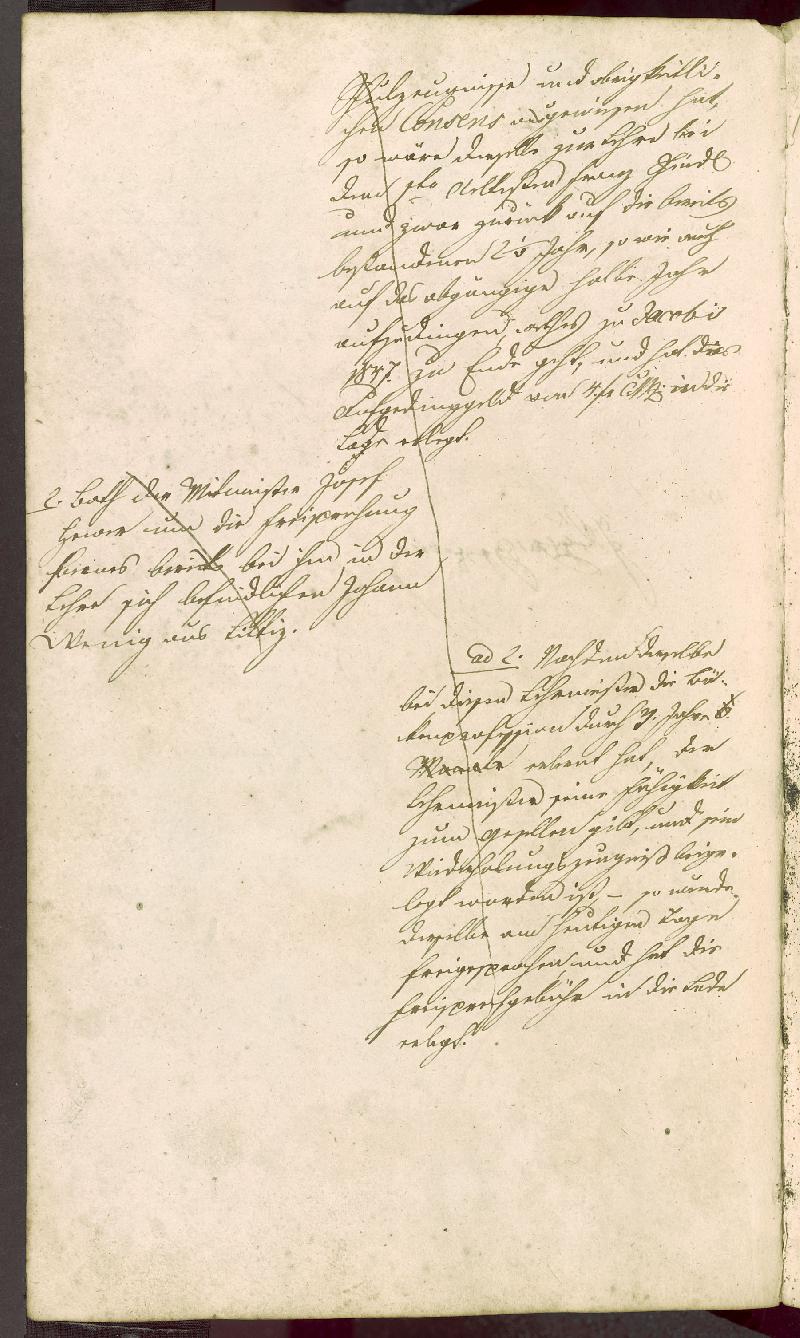 Schulzeugnisse und obrigkeitli-
chen Consens ausgewiesen hat,
so wäre derselbe zur Lehre bei
dem Aeltesten Franz
und zwar zurück auf die bereits
bestandenen 2½ Jahr, so wie auch
auf das abgängige halbe Jahr
aufzudingen, welches zu Jacobi
1847. zu Ende geht, und hat das
Aufgedinggeld von 4 f CMz in die
Lade erlegt.
2. Bath der Mitmeister Josef
um die Freisprechung
seines bereits bei ihm in der
Lehre sich befindlichen Johann
Wenig aus
ad 2. Nachdem derselbe
bei diesem Lehrmeister die Bä-
kenprofession durch 3. Jahre
erlernt hat, der
Lehrmeister seine Fähigkeit
zum Gesellen gibt, und sein
Wiederholungszeugniß beige-
legt worden ist, – so wurde
derselbe am heutigen Tage
freigesprochen, und hat die
Freisprechgebühr in die Lade
erlegt.